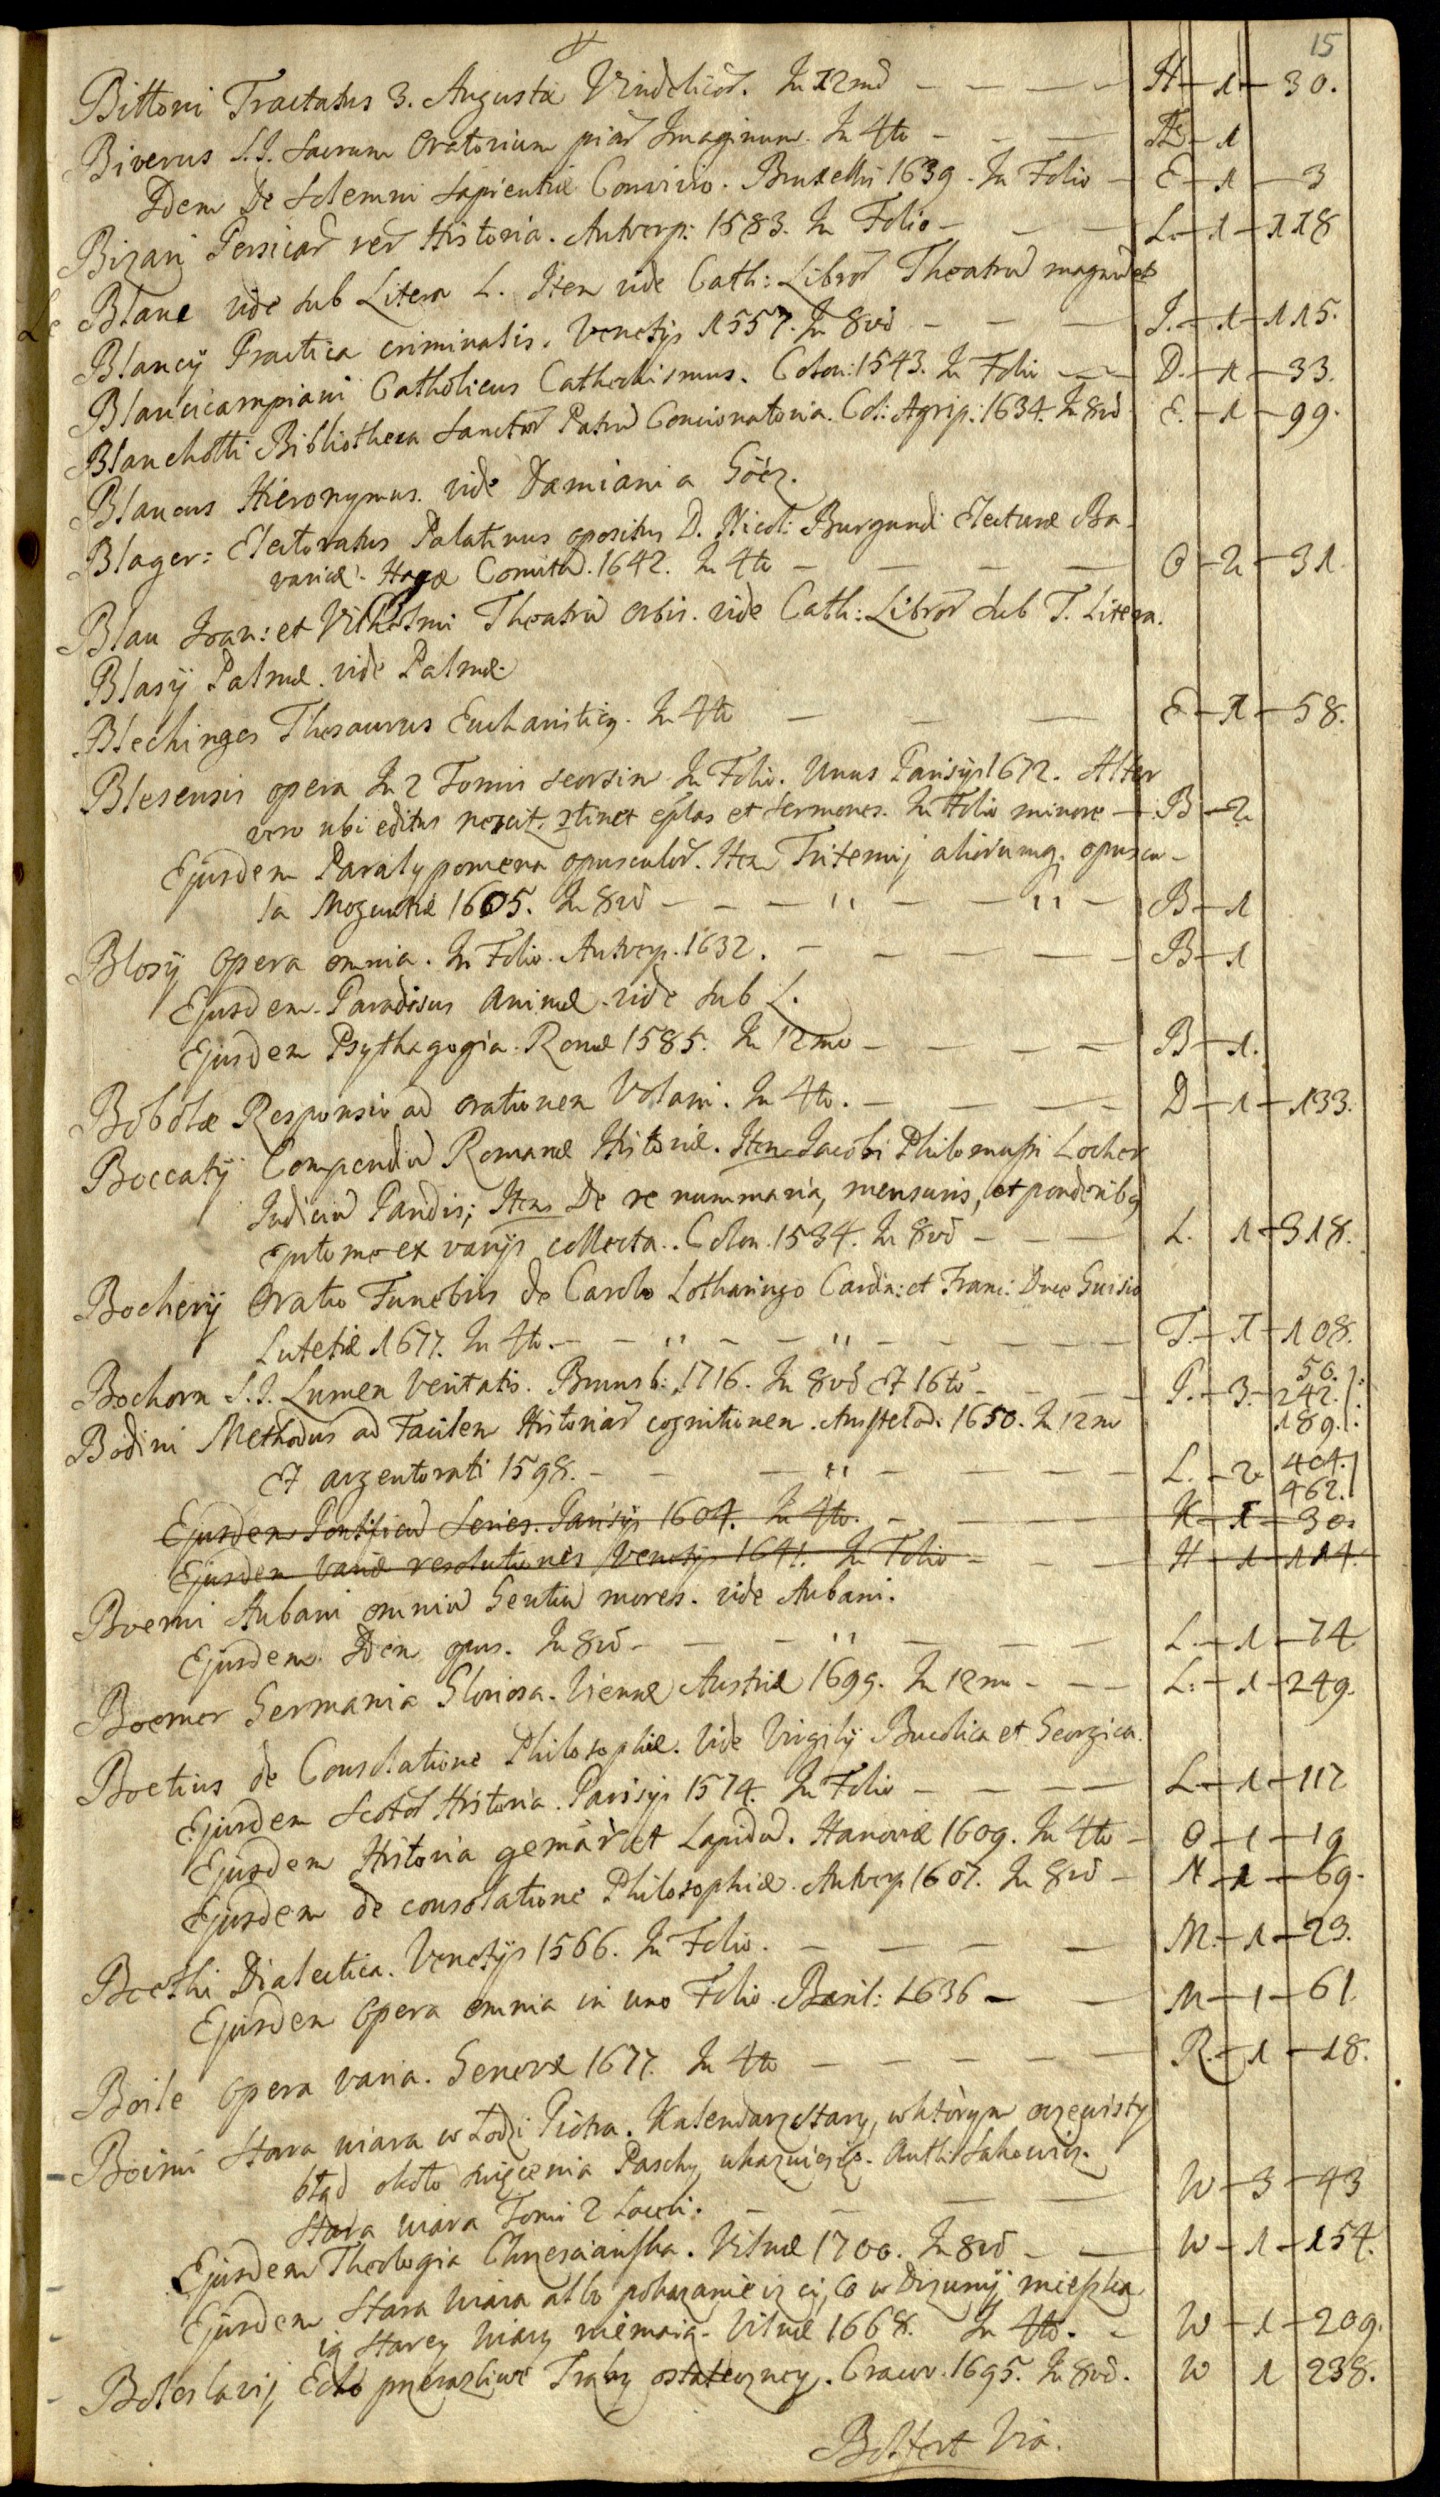 15
Bittoni Tractatus 3. Augustæ Vindelicor. In 12mo — H — 1 — 30.
Biverus S.J. Sacrum Oratorium piar Imaginum. In 4to — E — 1
Idem De Solemni Sapientiæ Convivio. Bruxellis 1639. In Folio — E — 1 — 3
Bizari Persicar rer Historia. Antverp: 1583. In Folio — L — 1 — 118
Le Blanc vide sub Litera L. Item vide Cath: Libror Theatru magnu et
Blancij Practica criminalis. Venetijs 1557. In 8vo — J. — 1 — 115.
Blancicampiani Catholicus Cathechismus. Colon: 1543. In Folio — D. — 1 — 33.
Blanchotti Bibliotheca Sanctor Patru Concionatoria. Col: Agrip: 1634. In 8vo E. — 1 — 99.
Blancus Hieronymus. vide Damiani a Goëz.
Blager: Electoratus Palatinus opositus D. Nicol: Burgundi Electuræ Ba-
variæ. Hagæ Comitu. 1642. In 4to — O — 2 — 31.
Blau Joan: et Vilhelmi Theatru orbis. vide Cath: Libror sub T. Litera.
Blasij Palmæ. vide Palmæ.
Blechinges Thesaurus Eucharisticq. In 4to — E — 1 — 58.
Blesensis opera In 2 Tomis seorsim In Folio. Unus Parisijs 1672. Alter
vero ubi editus nescit. ztinet eplas et sermones. In Folio minore — B — 2
Ejusdem Paralypomena opusculor. Item Tritemij aliorumq. opuscu-
la Moguntiæ 1605. In 8vo — " — " — B — 1
Blosij Opera omnia. In Folio. Antverp. 1632. — B — 1
Ejusdem Paradisus Animæ. vide sub L.
Ejusdem Psythagogia. Romæ 1585. In 12mo — B — 1.
Bobolæ Responsio ad orationem Volani. In 4to. — D — 1 — 133.
Boccatij Compendiu Romanæ Historiæ. Item Jacobi Philomussi Locher
Judiciu Paridis; Item De re nummaria, mensuris, et ponderibq
Epitome ex varijs collecta. Colon. 1534. In 8vo — L. 1 — 318.
Bocherij Oratio Funebris de Carolo Lotharingo Cardin: et Franc: Duce Guisio
Lutetiæ 1677. In 4to. — " — " — T. — 1 — 108.
Bochorn S.J. Lumen Veritatis. Brunsb: 1716. In 8vo Et 16to — P. — 3. — 50. 242. 189.
Bodini Methodus ad Facilem Historiar cognitionem. Amstelod. 1650. In 12mo
Et argentorati 1598. — " — L. — 2 404. 462.
Ejusdem Pontificu Series. Parisijs 1604. In 4to. — K — 1 — 30.
Ejusdem Variæ resolutiones Venetijs 1641. In Folio — H — 1 — 114.
Boemi Aubani omniu Gentiu mores. vide Aubani.
Ejusdem Idem opus. In 8vo — " — L. — 1 — 74
Boemer Germania Gloriosa. Viennæ Austriæ 1699. In 12mo — L. — 1 — 249.
Boetius de Consolatione Philosophiæ. Vide Virgilij Bucolica et Georgica.
Ejusdem Scotor Historia. Parisijs 1574. In Folio — L — 1 — 112
Ejusdem Historia gemar et Lapidu. Hanoviæ 1609. In 4to — O — 1 — 19
Ejusdem de consolatione Philosophiæ. Antverp 1607. In 8vo — N — 1 — 69.
Boethi Dialectica. Venetijs 1566. In Folio. — M. — 1 — 23.
Ejusdem Opera omnia in uno Folio. Basil: 1636 — M — 1 — 61.
Boile Opera varia. Genevæ 1677. In 4to — R. — 1 — 18.
Boimi Stara wiara w Łodzi Piotra. Kalendarz Stary, w którym oczewisty
błąd około święcenia Paschy ukazuie się. Auth: Sakowicz.
Stara wiara Tomi 2 Laceri. — W — 3 — 43
Ejusdem Theologia Chrzesciańska. Vilnæ 1700. In 8vo — W — 1 — 154.
Ejusdem Stara wiara albo pokazanie iz ci, co w Dizunij mieszka
ią Starey Wiary niemaią. Vilnæ 1668. In 4to. — W — 1 — 209.
Boleslavij Echo przerazliwe Trąby ostateczney. Cracov. 1695. In 8vo. W 1 238.
Bolfert Via.